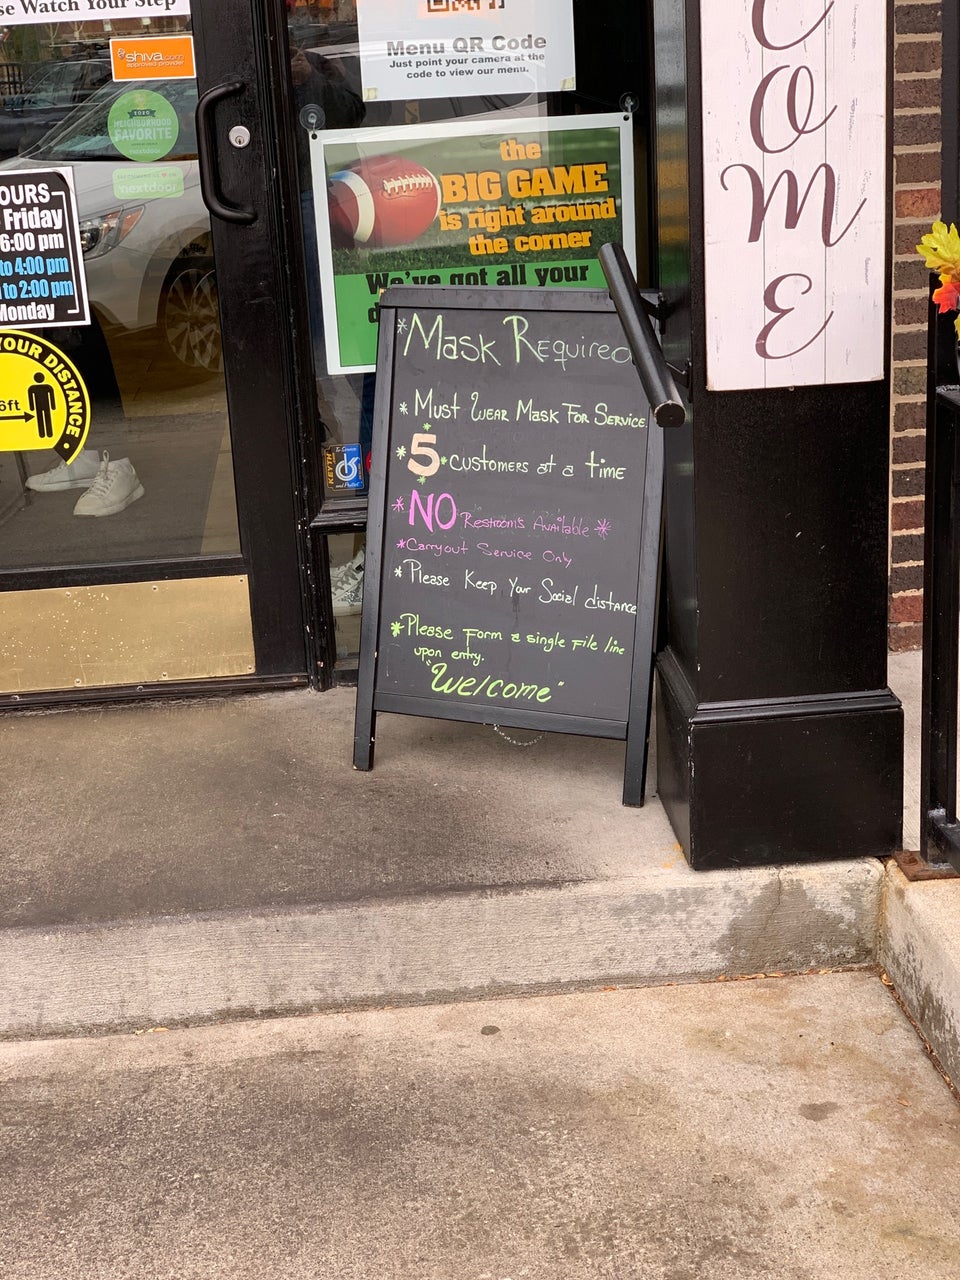 se Watch Your Step
shiva.com
approved provider
2020
NEIGHBORHOOD
FAVORITE
nextdoor
nextdoor
OURS
Friday
6:00 pm
to 4:00 pm
to 2:00 pm
Monday
YOUR DISTANCE
6ft
Menu QR Code
Just point your camera at the
code to view our menu.
the
BIG GAME
is right around
the corner
We've got all your
d
*Mask Required
*Must Wear Mask For Service.
*5 customers at a time
*NO Restrooms Available *
*Carryout Service Only
*Please Keep Your Social distance
*Please Form a single File line
upon entry.
"Welcome"
C
O
M
E